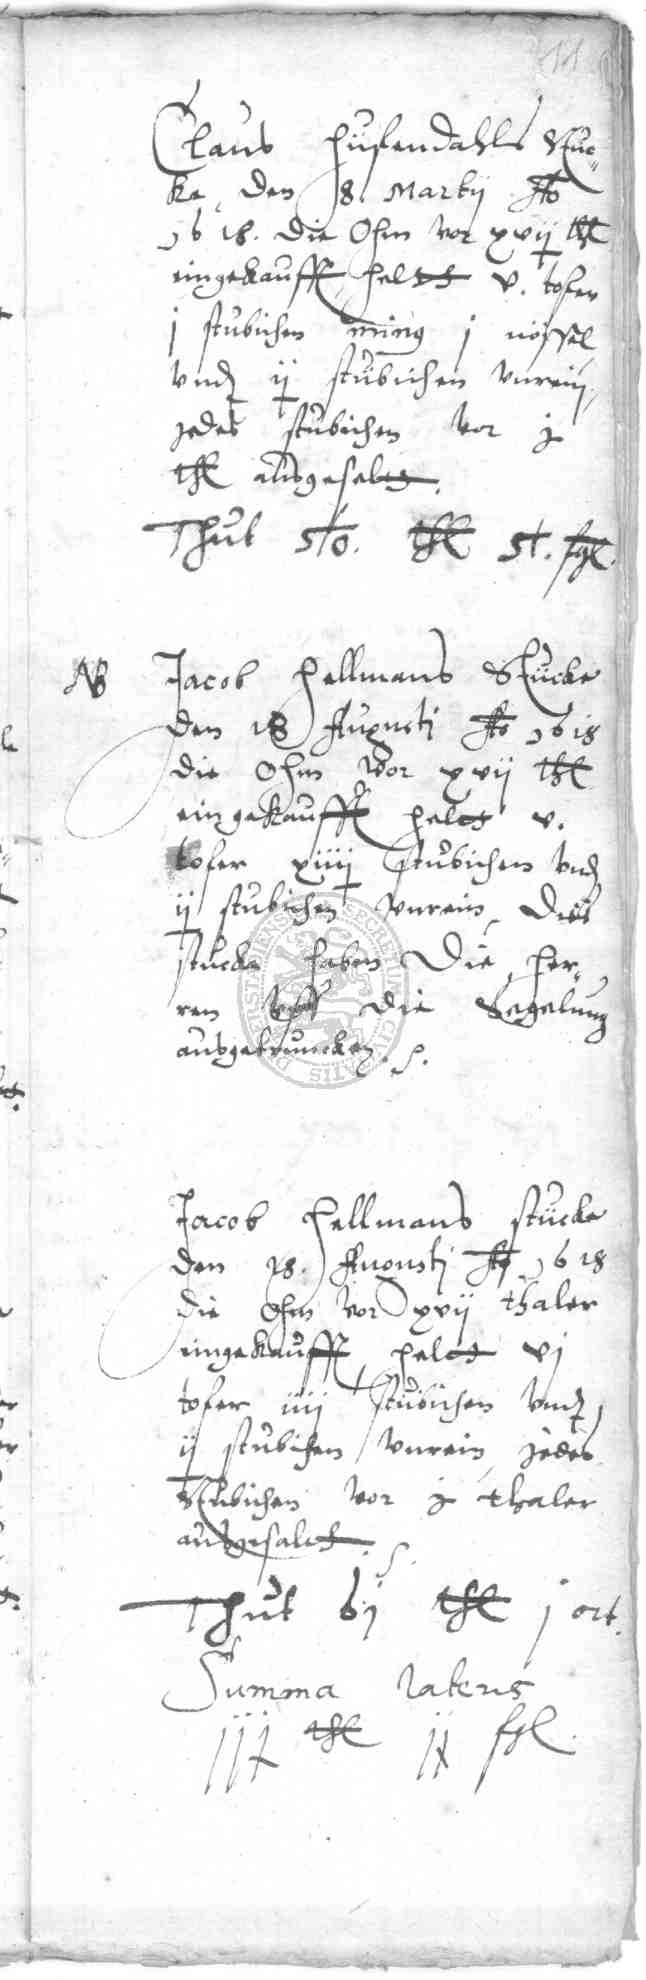 11
Claus Husendahls Stuc-
ke, den 8. Martij Ao
1618. die Ohm vor xvij thl
eingekaufft, heltt v. toser
j stubichen ming j nössel
vnd ij stübichen vnrein,
jedes stübichen vor j
thl ausgesaltt.
Thut thl fgl.
NB Jacob Hellmans Stücke
den 18 Augusti Ao 1618
die Ohm vor xvij thl
eingekaufft heltt v.
toser xiiij stübichen vnd
ij stubichen vnrein, Dies
stücke haben Die Her-
ren vff die Segelung
ausgetruncken.
Jacob Hellmans stücke
den 18. Augusti Ao 1618
die Ohm vor xvij thaler
eingekaufft, heltt vj
toser iiij stübichen vnd
ij stübichen vnrein, jedes
Stübichen vor j thaler
ausgesaltt.
Thut 61 thl j ort.
Summa lateris
thl fgl.
SECRETUM CIVITATIS